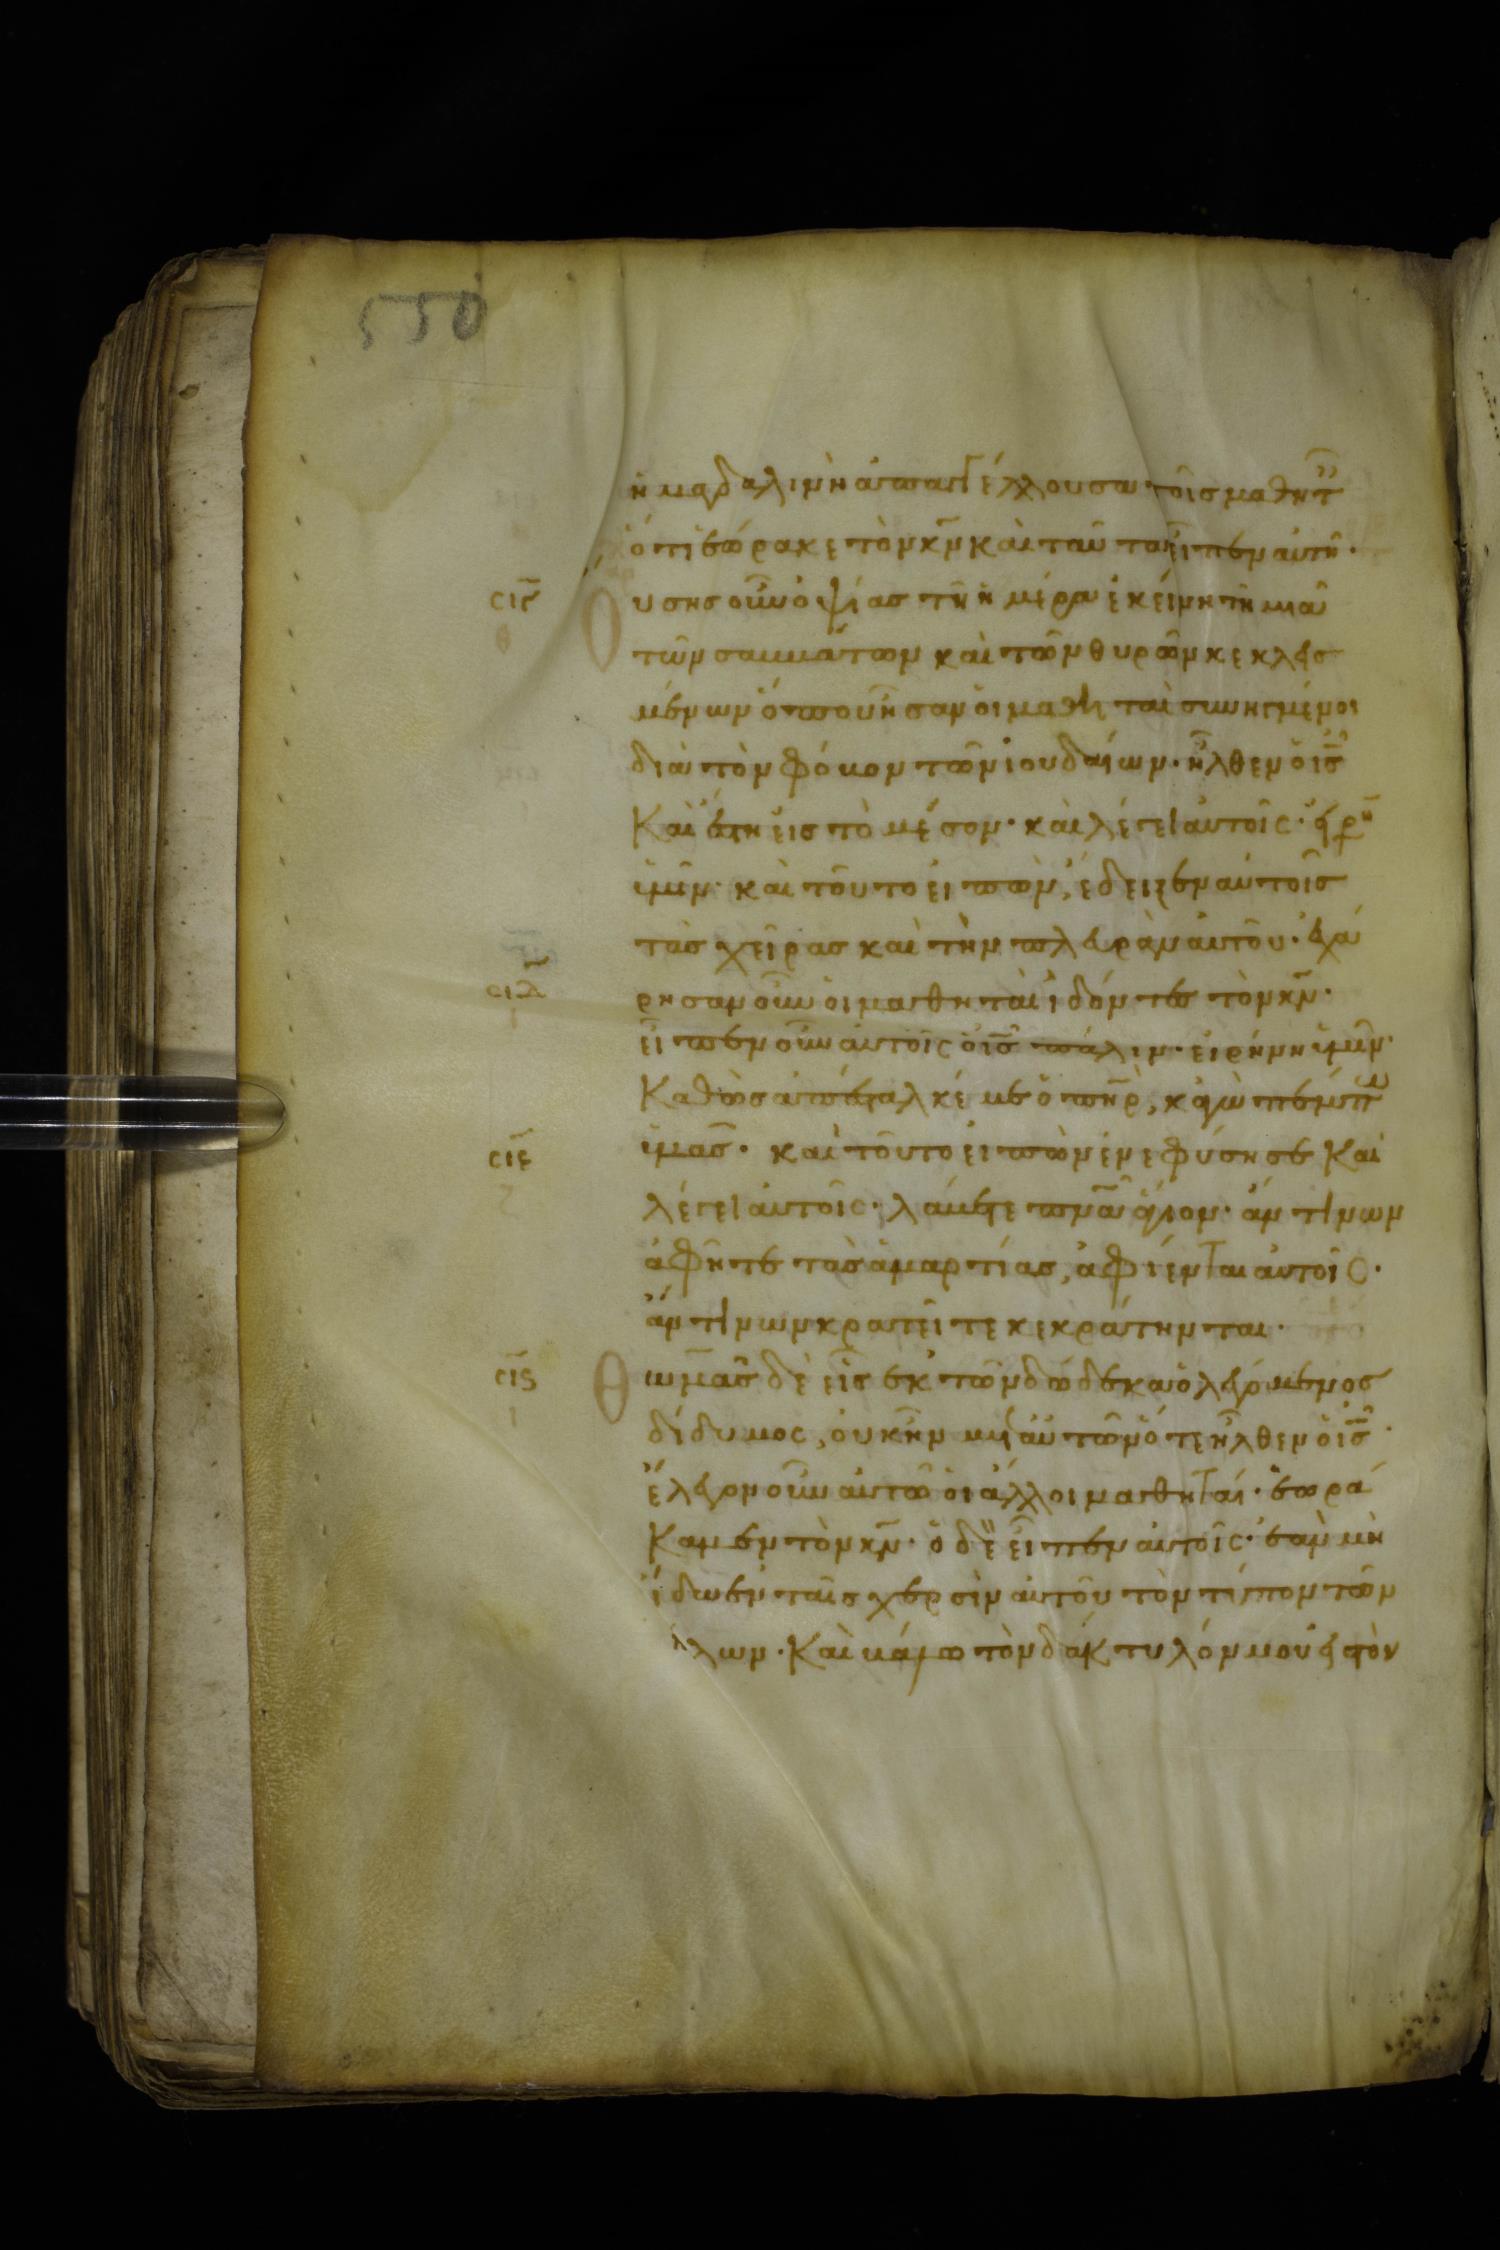 550
ἡ μαγδαλινὴ ἀπαγγέλλουσα τοῖς μαθητ
ὅτι ἑώρακε τὸν κν καὶ ταῦτα εἶπεν αὐτῆ·
σιγ Ουσης οὖν ὀψίας τῆ ἡμέρα ἐκείνη τῆ μιᾶ
θ
τῶν σαββάτων καὶ τῶν θυρῶν κεκλεισ
μένων ὅπου ἦσαν οἱ μαθηταὶ συνηγμένοι
διὰ τὸν φόβον τῶν ἰουδαίων· ἦλθεν ὁ ις
Καὶ ἔστη εἰς τὸ μέσον· καὶ λέγει αὐτοῖς· εἰρη
ὑμῖν· καὶ τοῦτο εἰπὼν, ἔδειξεν αὐτοῖς
τὰς χεῖρας καὶ τὴν πλευρὰν αὐτοῦ· ἐχά
σιδ ρησαν οὖν οἱ μαθηταὶ ἰδόντες τὸν κν·
εἶπεν οὖν αὐτοῖς ὁ ις πάλιν· εἰρήνη ὑμῖν·
Καθὼς ἀπέσταλκέ με ὁ πηρ, κἀγὼ πέμπω
σιε ὑμας· καὶ τοῦτο εἰπὼν ἐνεφύσησε Καὶ
ζ
λέγει αὐτοῖς· λάβετε πνα ἅγιον· ἄν τινων
ἀφῆτε τὰς ἁμαρτίας, ἀφίενται αὐτοῖς·
ἄν τινων κρατεῖτε κεκράτηνται·
σις Θωμᾶς δὲ εἷς ἐκ τῶν δώδεκα ὁ λεγόμενος
ι
δίδυμος, οὐκ ἦν μετ αὐτῶν ὅτε ἦλθεν ὁ ις·
ἔλεγον οὖν αὐτῶ οἱ ἄλλοι μαθηταί· ἑωρά
Καμεν τὸν κν· ὁ δὲ εἶπεν αὐτοῖς· ἐὰν μὴ
ἴδω ἐν ταῖς χερσὶν αὐτοῦ τὸν τύπον τῶν
ἥλων· Καὶ βάλω τὸν δάκτυλόν μου εἰς τὸν